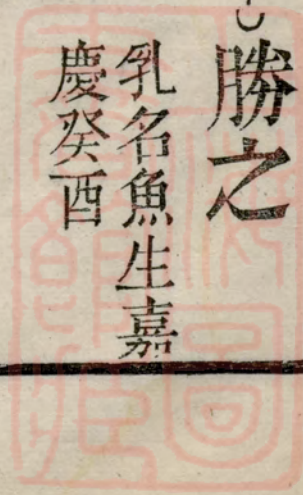 勝之
乳名魚生嘉
慶癸酉